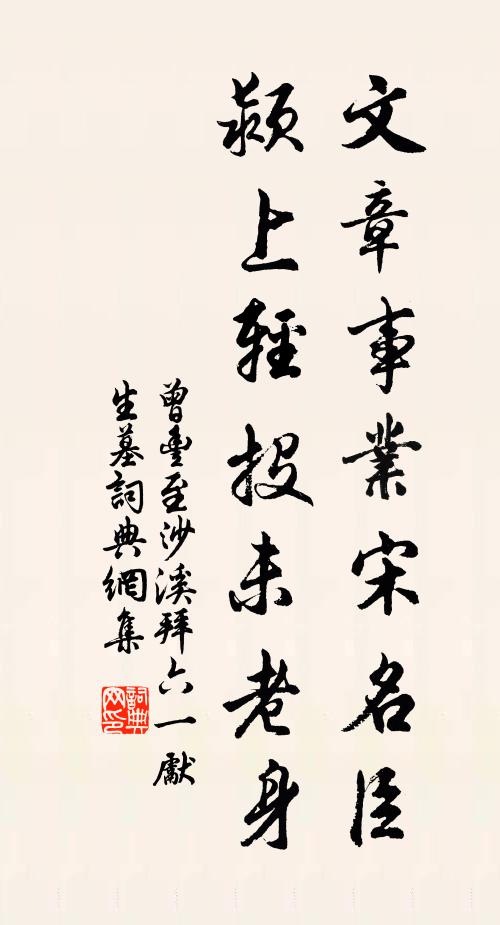 文章事業宋名臣
潁上輕投未老身
曾豐至沙溪拜六一獻
生墓詞典網集
詞典
网印